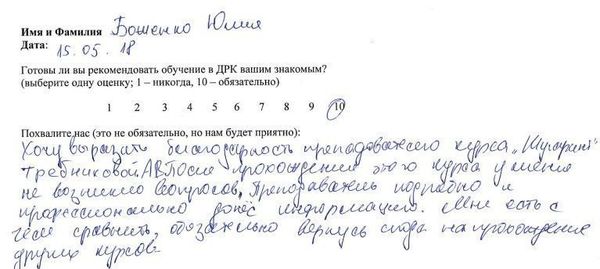 Имя и Фамилия Боженко Юлия
Дата: 15.05.18
Готовы ли вы рекомендовать обучение в ДРК вашим знакомым?
(выберите одну оценку; 1 – никогда, 10 – обязательно)
1 2 3 4 5 6 7 8 9 10
Похвалите нас (это не обязательно, но нам будет приятно):
Хочу выразить благодарность преподавателю курса „Шугаринг"
Требниковой А.В. После прохождения этого курса у меня
не возникло вопросов. Преподаватель подробно и
профессионально донёс информацию. Мне есть с
чем сравнить, обязательно вернусь сюда на прохождение
других курсов.